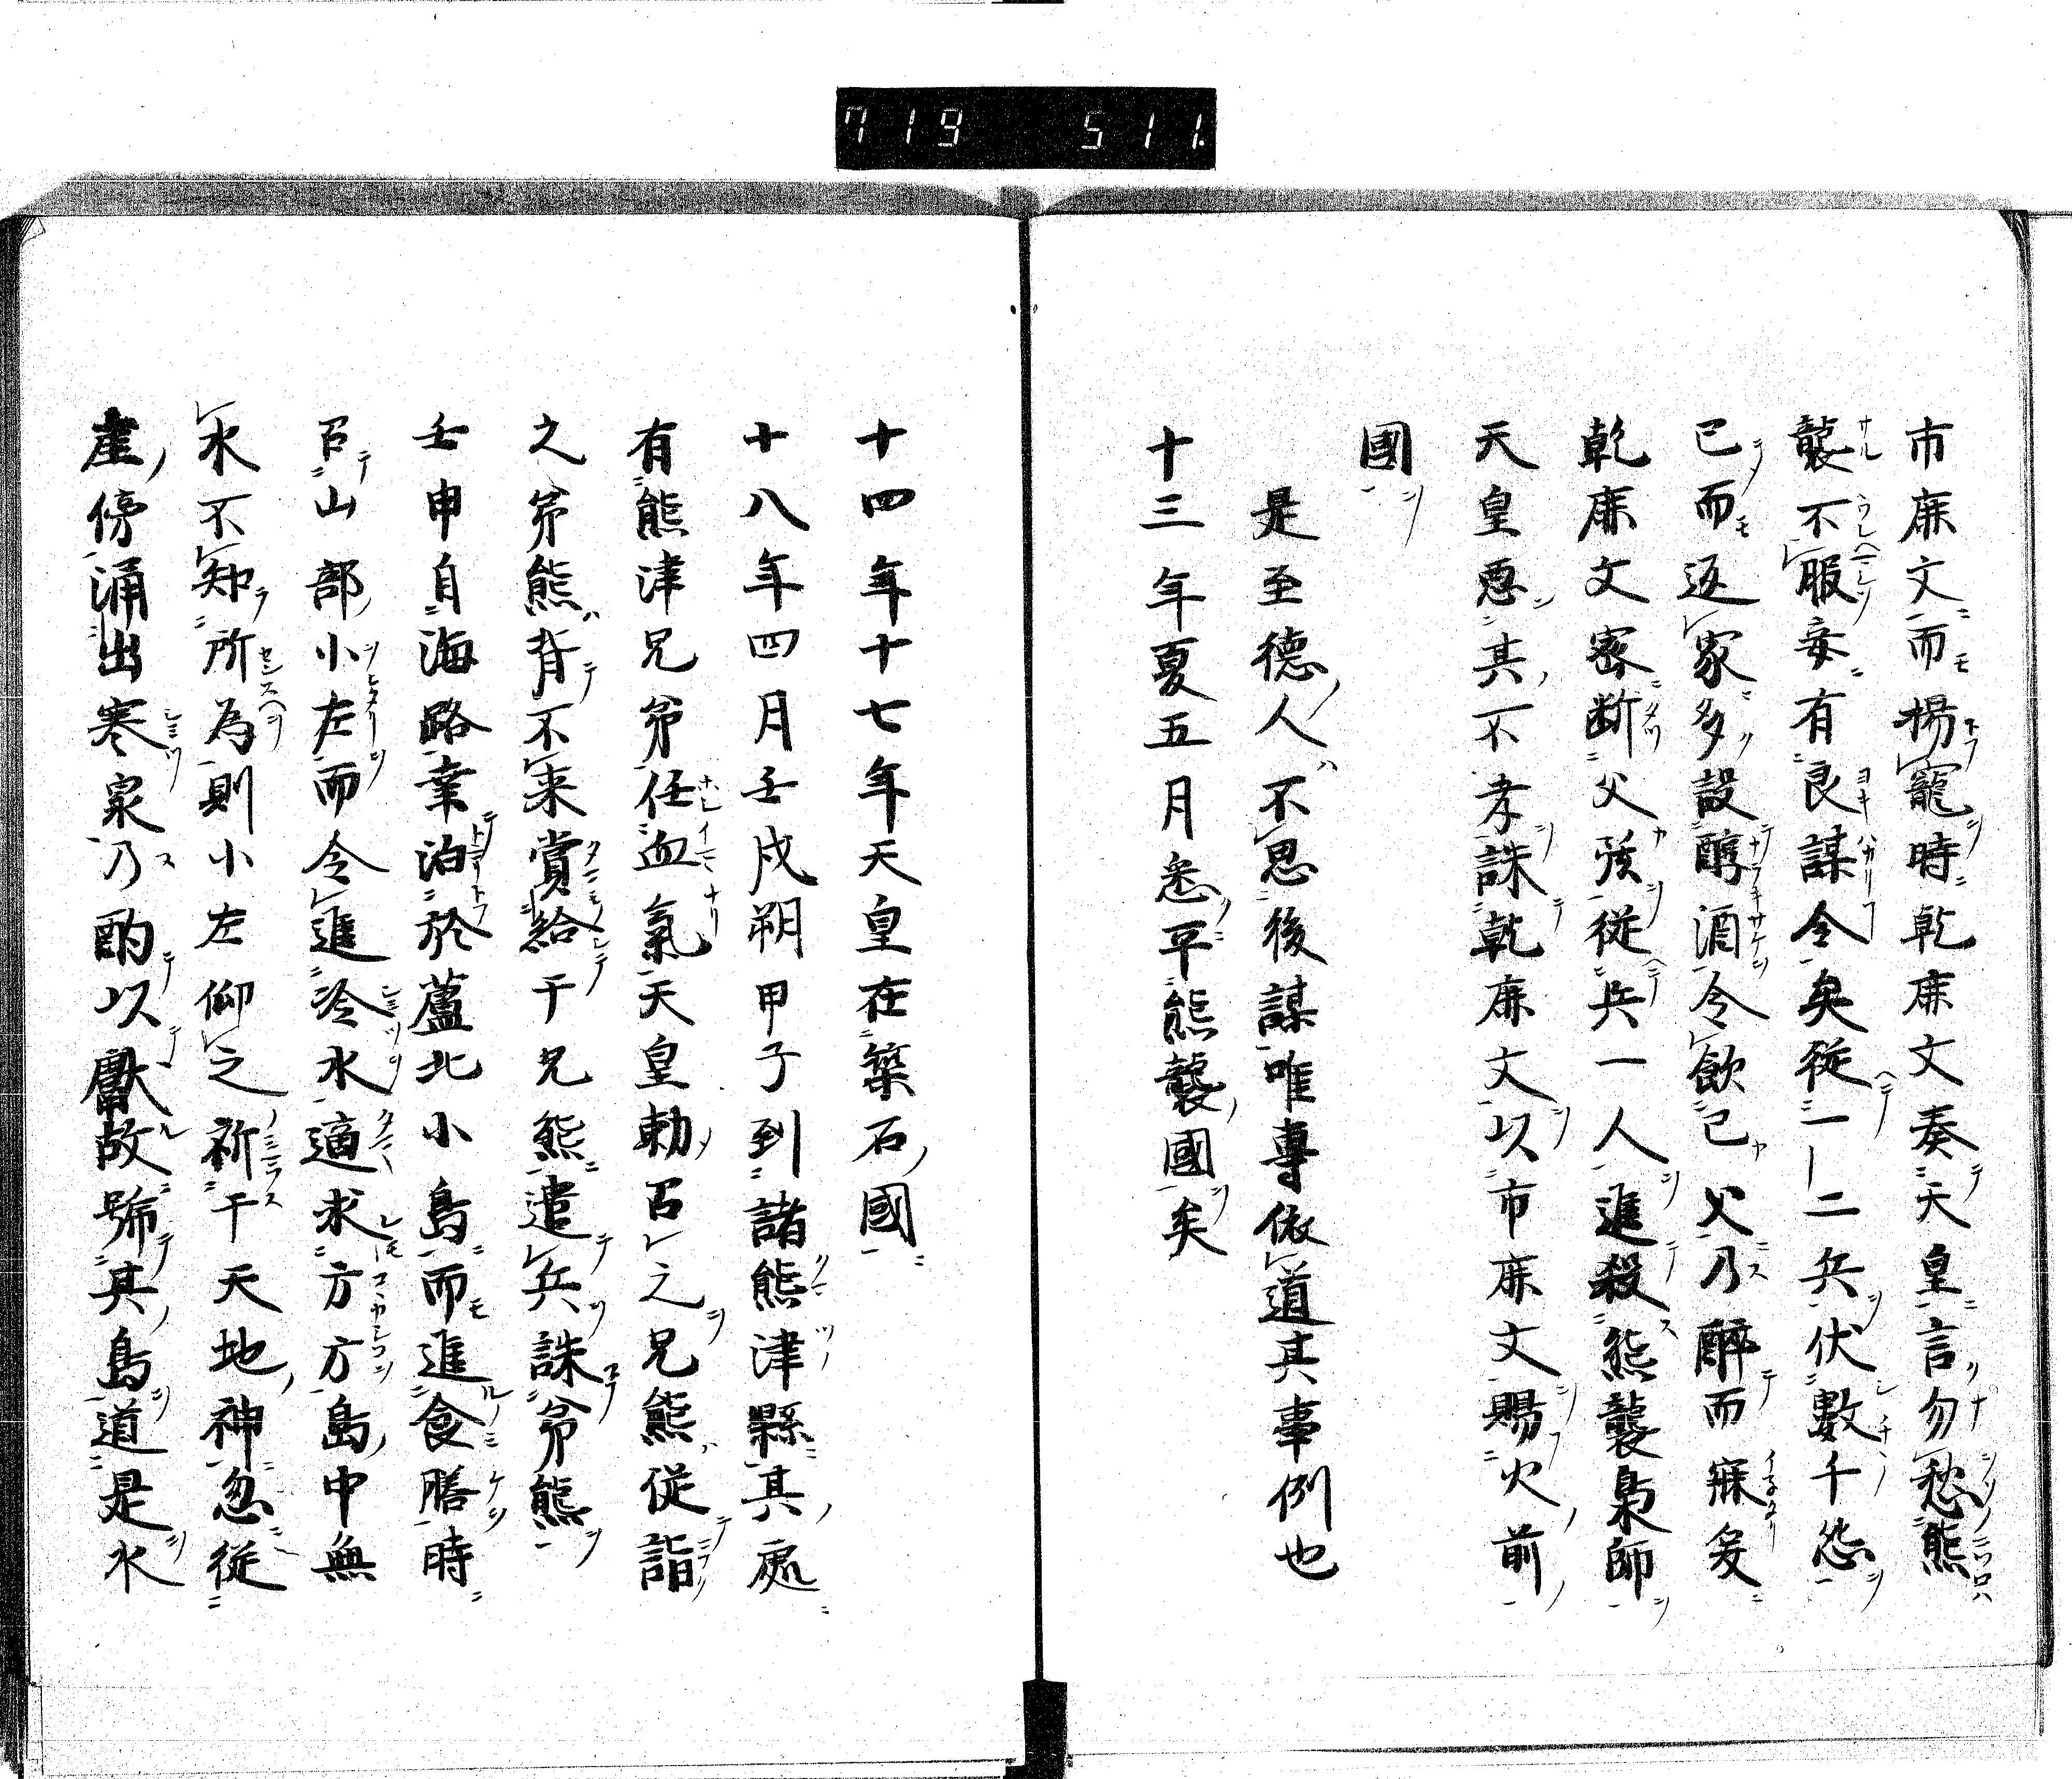 719 511.
市鹿文而揚寵時乾鹿文奏天皇言勿愁熊
襲不服妾有良謀令矣従一二兵伏數千怨
已而返家多設醇酒令飲已父乃醉而寐爰
乾鹿文密断父弦従兵一人進殺熊襲梟師
天皇惡其不孝誅乾鹿文以市鹿文賜火前
國
是至德人不思後謀唯專依道其事例也
十三年夏五月悉平熊襲國矣
十四年十七年天皇在築石國
十八年四月壬戌朔甲子到諸熊津縣其處
有熊津兄弟任血氣天皇勅召之兄熊従詣
之弟熊背不来賞給于兄熊遣兵誅弟熊
壬申自海路幸泊於蘆北小島而進食膳時
召山部小左而令進冷水適求方方島中無
水不知所為則小左仰之祈于天地神忽従
崖傍涌出寒泉乃酌以獻故號其島道是水